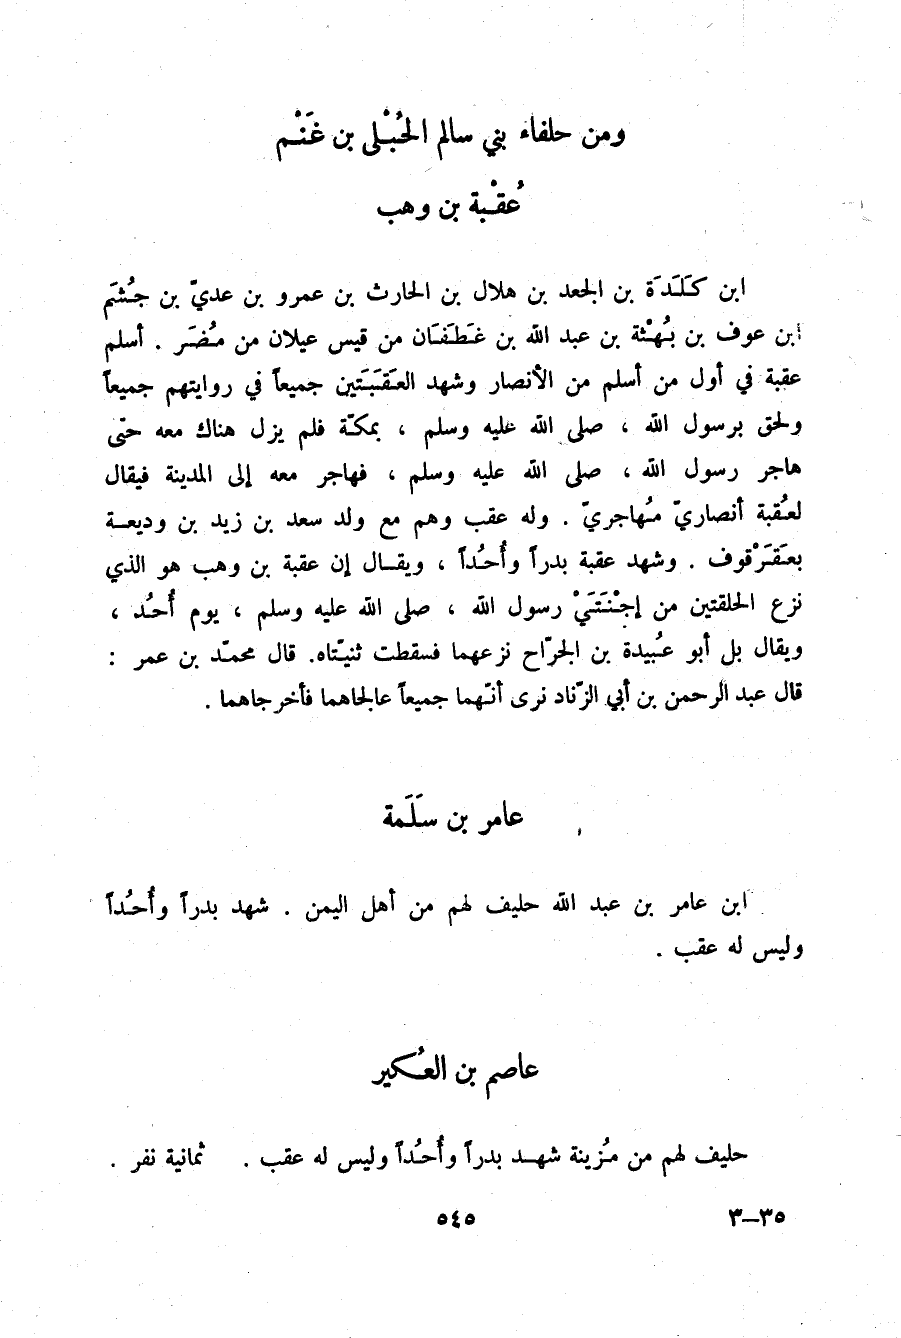 ومن حلفاء بني سالم الحُبْلى بن غَنْم
عُقْبة بن وهب
ابن كَلَدَة بن الجعد بن هلال بن الحارث بن عمرو بن عديّ بن جُشَم
ابن عوف بن بُهْثة بن عبد الله بن غَطَفَان من قيس عيلان من مُضَر . أسلم
عقبة في أول من أسلم من الأنصار وشهد العَقَبَتَين جميعاً في روايتهم جميعاً
ولحق برسول الله ، صلى الله عليه وسلم ، بمكّة فلم يزل هناك معه حتى
هاجر رسول الله ، صلى الله عليه وسلم ، فهاجر معه إلى المدينة فيقال
لعُقبة أنصاريّ مُهاجريّ . وله عقب وهم مع ولد سعد بن زيد بن وديعة
بعَقَرْقوف . وشهد عقبة بدراً وأُحُداً ، ويقال إن عقبة بن وهب هو الذي
نزع الحلقتين من إجْنَتَيْ رسول الله ، صلى الله عليه وسلم ، يوم أُحُد ،
ويقال بل أبو عُبيدة بن الجرّاح نزعهما فسقطت ثنيّتاه. قال محمّد بن عمر :
قال عبد الرحمن بن أبي الزّناد نرى أنّهما جميعاً عالجاهما فأخرجاهما .
عامر بن سَلَمة
ابن عامر بن عبد الله حليف لهم من أهل اليمن . شهد بدراً وأُحُداً
وليس له عقب .
عاصم بن العُكير
حليف لهم من مُزينة شهد بدراً وأُحُداً وليس له عقب . ثمانية نفر .
٣–٣٥ ٥٤٥